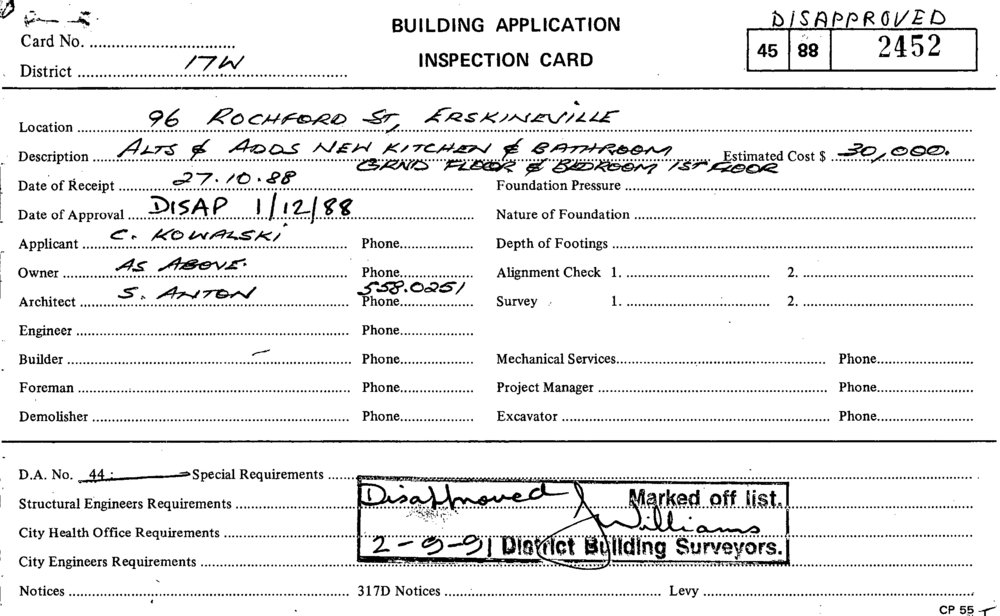 BUILDING APPLICATION DISAPPROVED
Card No. INSPECTION CARD 45 88 2452
District 17W
Location 96 ROCHFORD ST, ERSKINEVILLE
Description ALTS & ADDS NEW KITCHEN & BATHROOM Estimated Cost $ 30,000.
GRND FLOOR & BEDROOM 1ST FLOOR
Date of Receipt 27.10.88 Foundation Pressure
Date of Approval DISAP 1/12/88 Nature of Foundation
Applicant C. KOWALSKI Phone Depth of Footings
Owner AS ABOVE. Phone Alignment Check 1. 2.
Architect S. ANTON Phone 558.0251 Survey 1. 2.
Engineer Phone
Builder – Phone Mechanical Services Phone
Foreman Phone Project Manager Phone
Demolisher Phone Excavator Phone
D.A. No. 44: Special Requirements
Structural Engineers Requirements Disapproved Marked off list.
City Health Office Requirements Williams
2-9-91 District Building Surveyors.
City Engineers Requirements
Notices 317D Notices Levy
CP 55